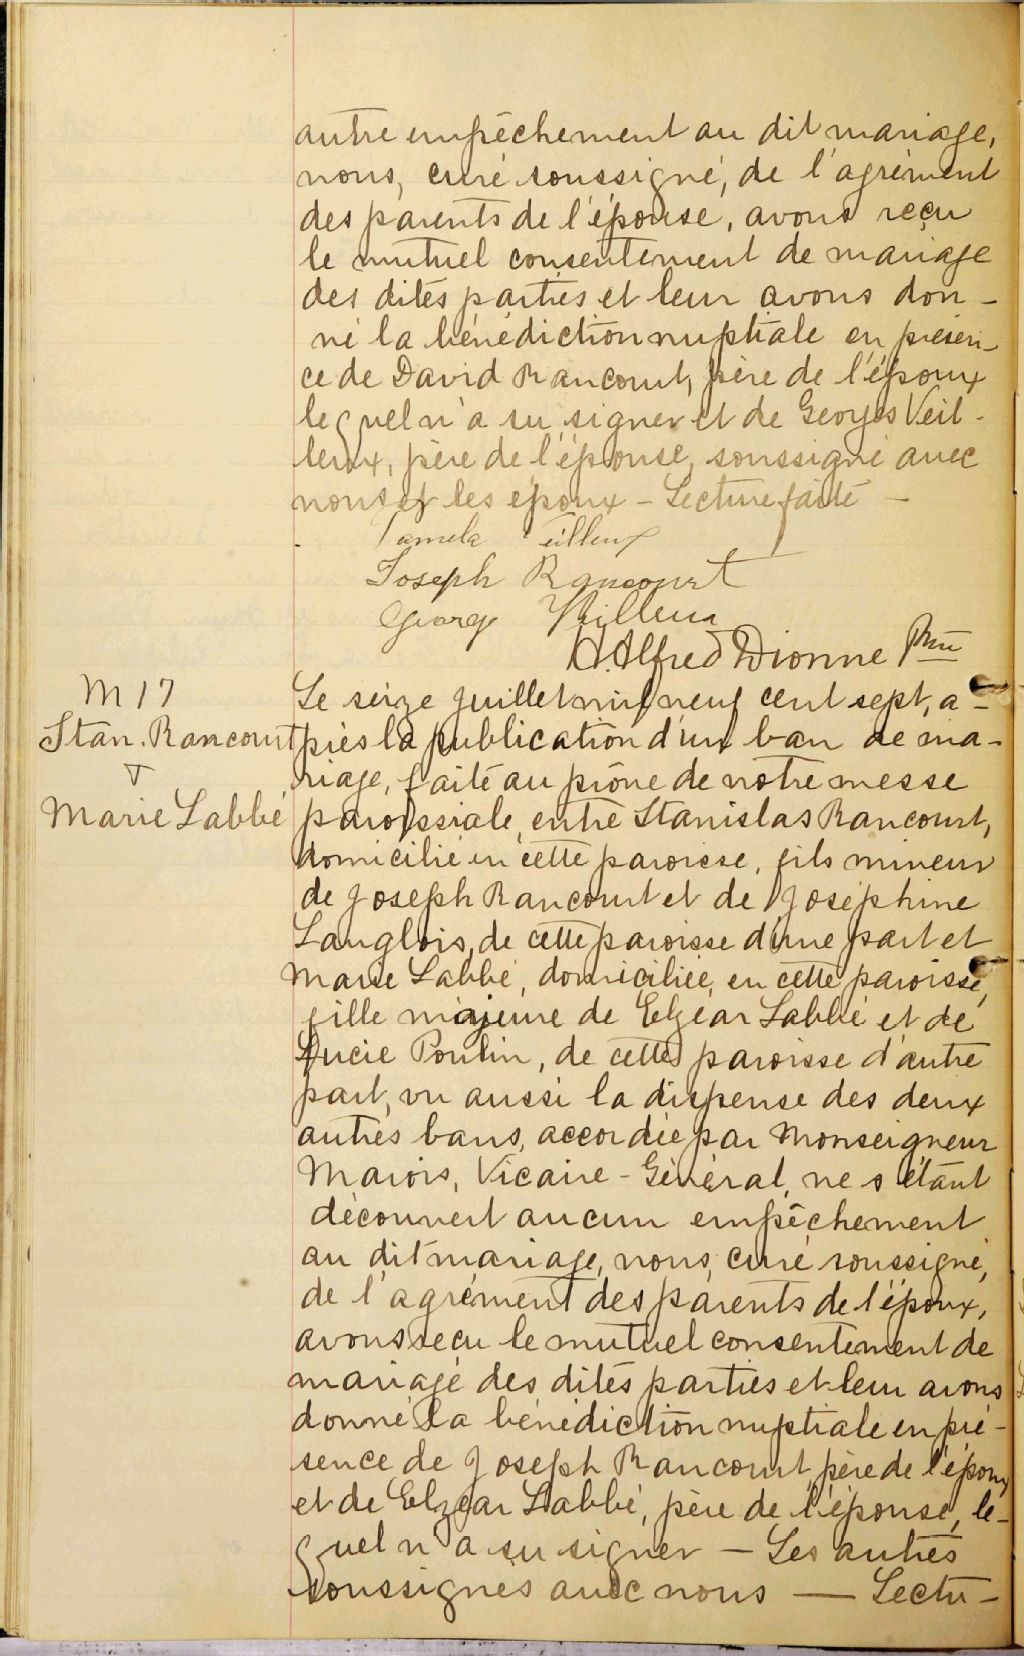 autre empêchement au dit mariage,
nous, curé soussigné, de l'agrément
des parents de l'épouse, avons reçu
le mutuel consentement de mariage
des dites parties et leur avons don-
né la bénédiction nuptiale en présen-
ce de David Rancourt, père de l'époux
lequel n'a su signer et de Georges Veil-
leux, père de l'épouse, soussigné avec
nous et les époux - Lecture faite -
Pamela Veilleux
Joseph Rancourt
George Veilleux
H. Alfred Dionne Ptre
M 17
Stan. Rancourt
+
Marie Labbé
Le seize juillet mil neuf cent sept, a-
près la publication d'un ban de ma-
riage, faite au prône de notre messe
paroissiale, entre Stanislas Rancourt,
domicilié en cette paroisse, fils mineur
de Joseph Rancourt et de Joséphine
Langlois, de cette paroisse d'une part et
Marie Labbé, domiciliée, en cette paroisse,
fille majeure de Elzéar Labbé et de
Lucie Poulin, de cette paroisse d'autre
part, vu aussi la dispense des deux
autres bans, accordée par Monseigneur
Marois, Vicaire-Général, ne s'étant
découvert aucun empêchement
au dit mariage, nous, curé soussigné,
de l'agrément des parents de l'époux,
avons reçu le mutuel consentement de
mariage des dites parties et leur avons
donné la bénédiction nuptiale en pré-
sence de Joseph Rancourt, père de l'époux
et de Elzéar Labbé, père de l'épouse, le-
quel n'a su signer - Les autres
soussignés avec nous — Lectu-